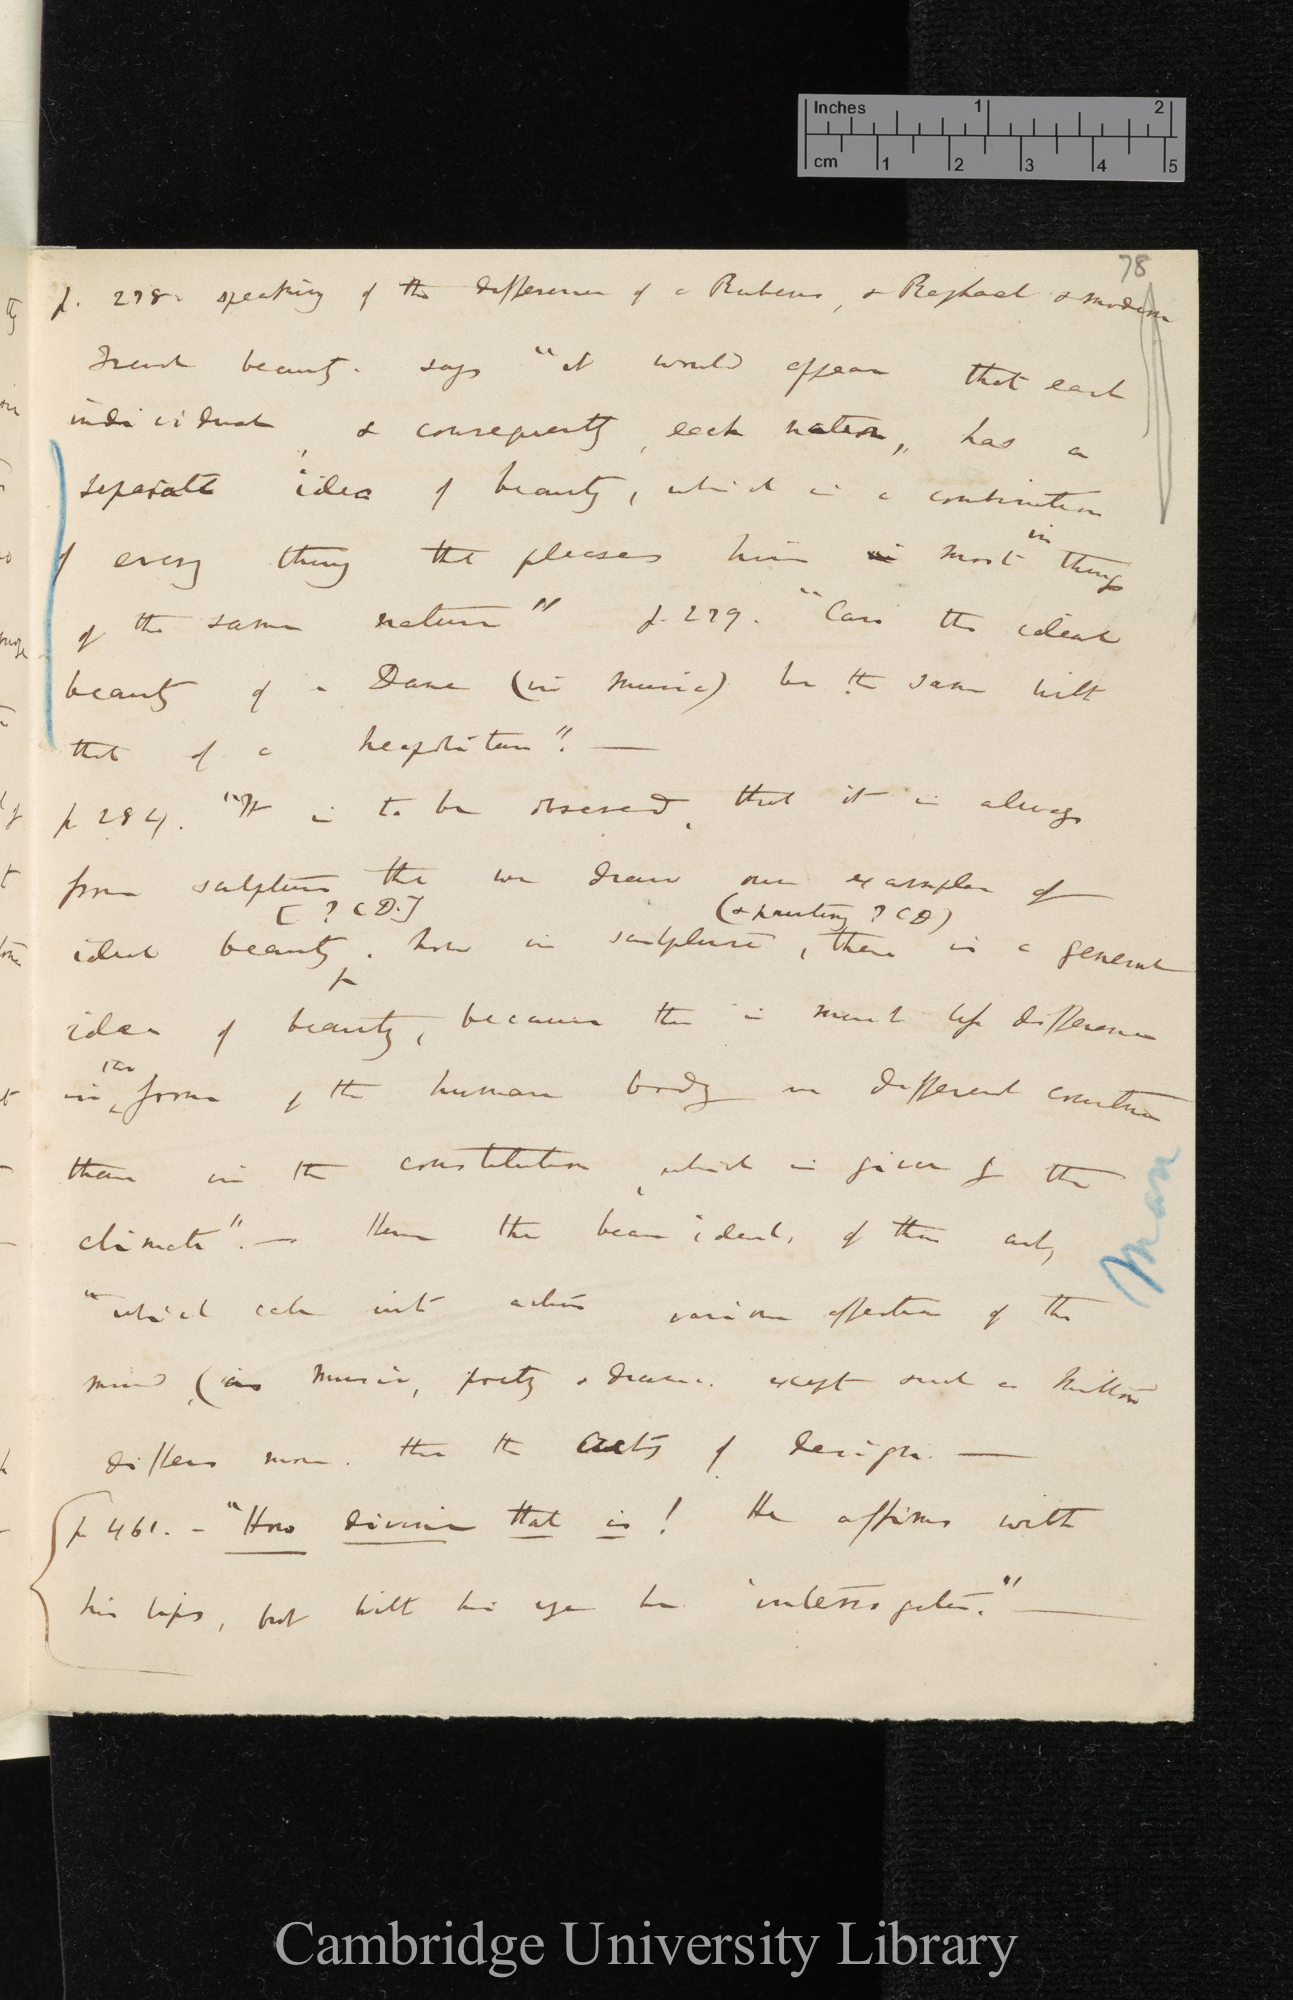 Inches 1 2
cm 1 2 3 4 5
78
p. 278. speaking of the difference of a Rubens, & Raphael & modern
French beauty. says "it would appear that each
individual & consequently, each nation, has a
separate idea of beauty, which is a combination
of every thing that pleases him in most in things
of the same nature" p. 279. "Can the ideal
beauty of a Dane (in music) be the same with
that of a neapolitan". —
p 284. "It is to be observed, that it is always
from sculpture that we draw our examples of
[? CD.] (& painting? CD)
ideal beauty. now in sculpture, there is a general
for
idea of beauty, because there is much less difference
the
in form of the human body in different countries
than in the constitution, which is given by the
climate". — Hence the beau ideal, of those arts,
"which call into action various affections of the
mind (as music, poetry & drama. except such as Milton
differs more. than the arts of design. —
p 461. – "How divine that is! He affirms with
his lips, but with his eyes he interrogates." —
Man
Cambridge University Library